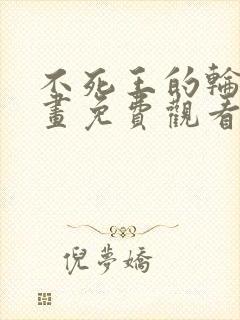 不死王的輪
畫免費觀看
倪夢嬌